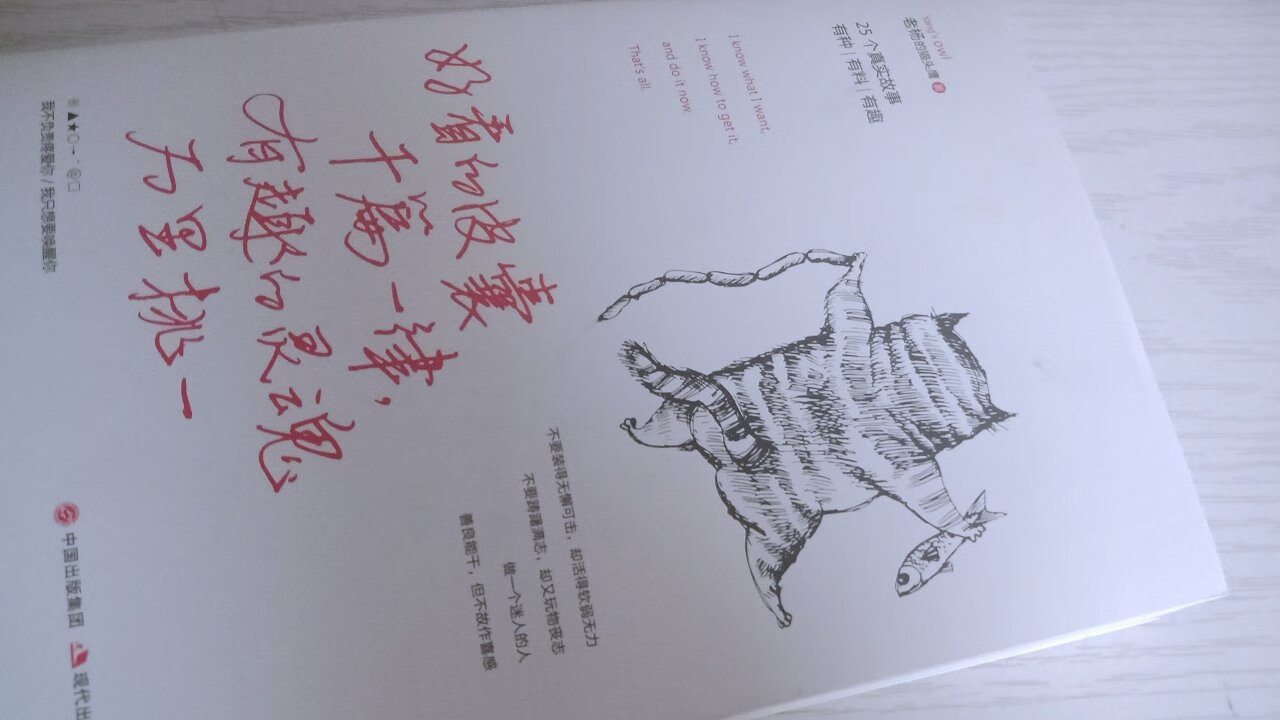 Yang's Owl
老杨的猫头鹰 著
25个真实故事
有种 | 有料 | 有趣
I know what I want.
I know how to get it.
and do it now.
That's all.
不要装得无懈可击，却活得软弱无力
不要踌躇满志，却又玩物丧志
做一个迷人的人
善良能干，但不故作喜感
好看的皮囊
千篇一律，
有趣的灵魂
万里挑一
我不负责疼爱你 / 我只想要唤醒你
中国出版集团 现代出